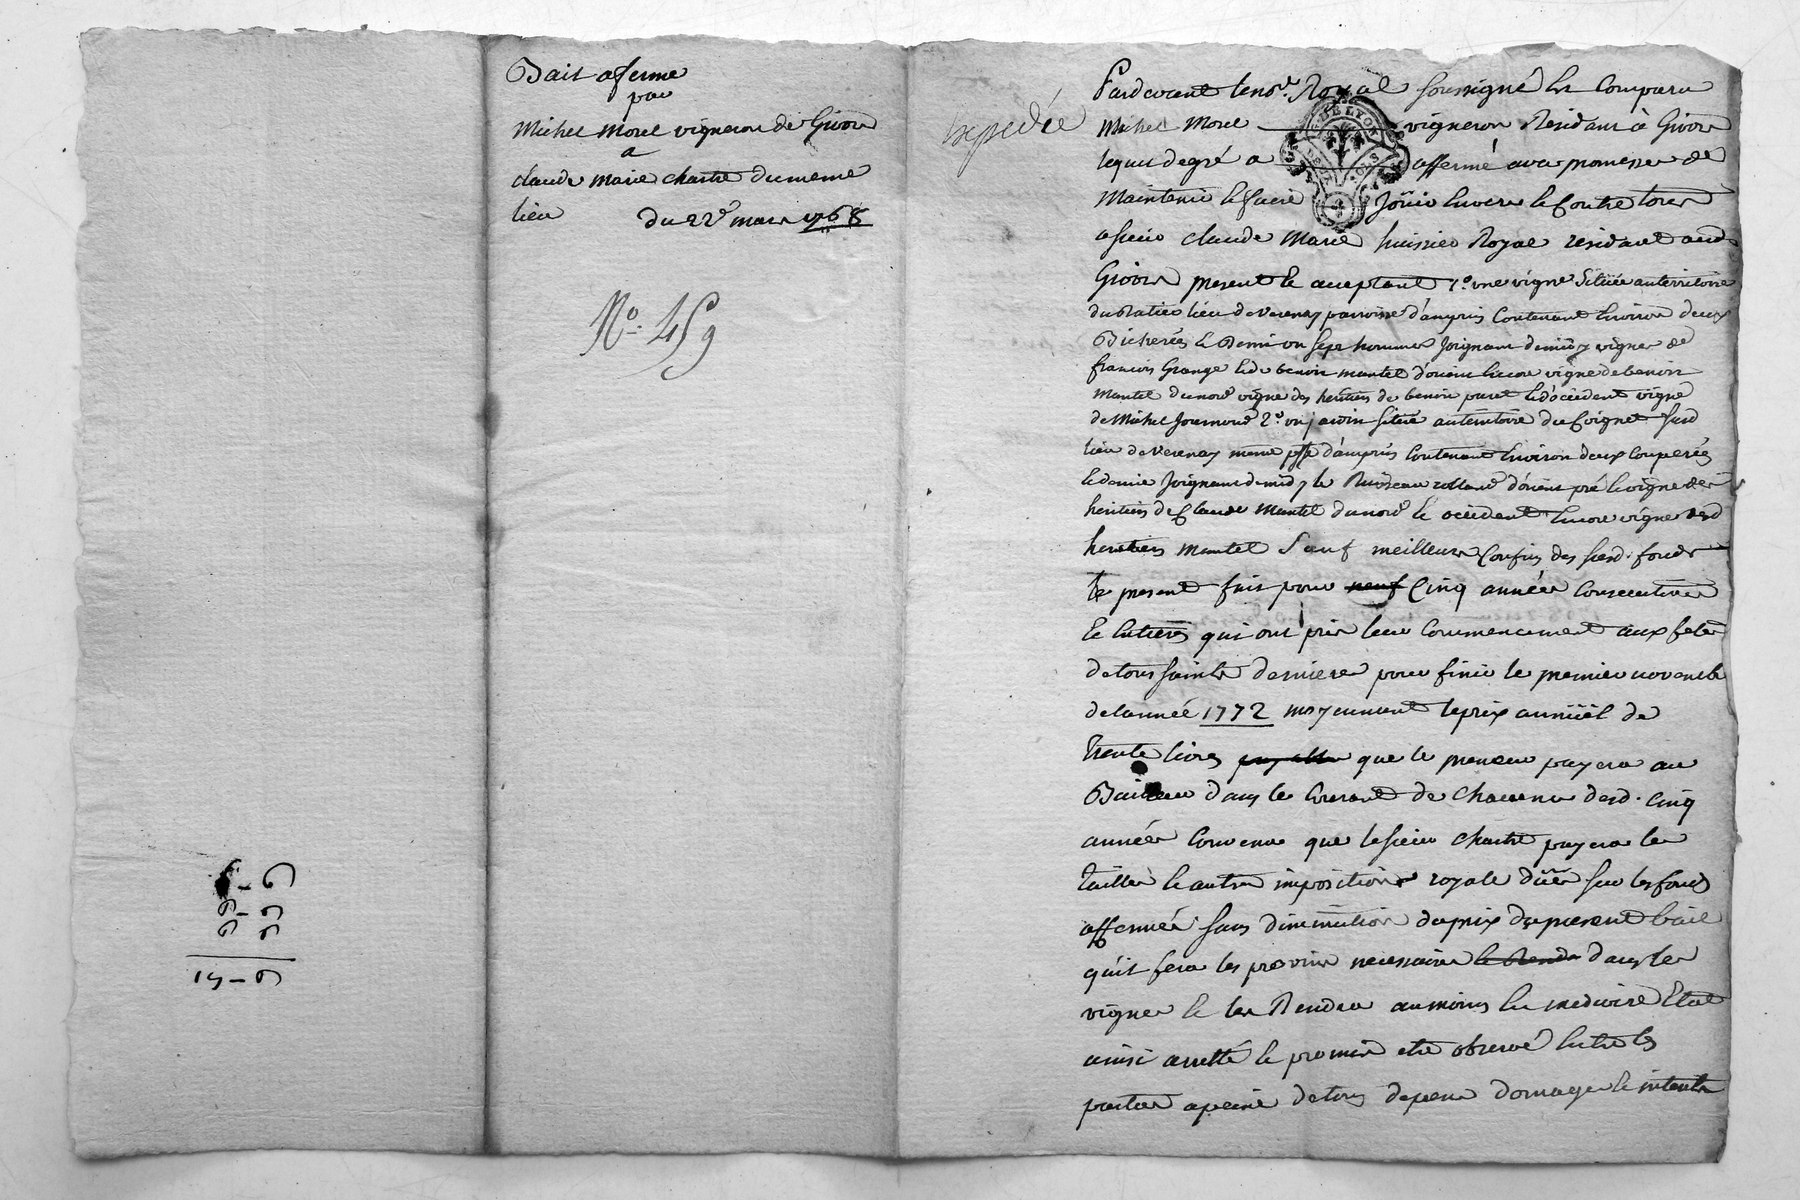 Bail aferme
par
Michel Morel vigneron de Givors
a
claude marie chartre du meme
lieu du 22e. mars 1768
No. 459
expediée
Pardevant le nore. Royal soussigné est comparu
Michel Morel vigneron Residant à Givors
lequel degré a affermé avec promesse de
maintenir et faire jöuir envers et contre tous
a sieur claude Marie huissier Royal residant aud.
Givors present et acceptant 1o. une vigne Sitüée au territoire
du lieu de Verenay parroisse d'ampuis contenant Environ deux
Bicherées et Demi ou sept hommes joignant de midy vigne de
francois Grange et de benoit mantel d'orient Encore vigne de benoit
Mantel du nord vigne des heritiers de benoit et d'occident vigne
de Michel Journoud 2o. un jardin sitüé au territoire du Coignet susd.
lieu de Verenay meme psse d'ampuis Contenant Environ deux Couperées
et demie joignant de midy le Ruisseau d'orient pré et vigne des
heritiers de Claude Mantel du nord et occident Encore vigne desd.
heritiers mantel Sauf meilleurs Confins desd. fonds
le present fait pour neuf Cinq années Consecutives
et Entieres qui ont pris leur Commencement aux fetes
de tous saints dernieres pour finir le premier novembre
de l'année 1772 moyennant le prix annüel de
trente livres payable que le preneur payera au
Bailleur dans le Courant de chacune desd. Cinq
années Convenu que le sieur chartre payera les
tailles et autres impositions royales düës sur les fonds
affermés sans diminution du prix du present bail
qu'il fera les provins necessaires et Rendra dans les
vignes et les Rendra au moins En mediocre Etat
ainsi arretté et promis etre observé Entre les
parties a peine de tous depens domages et interets
15-9